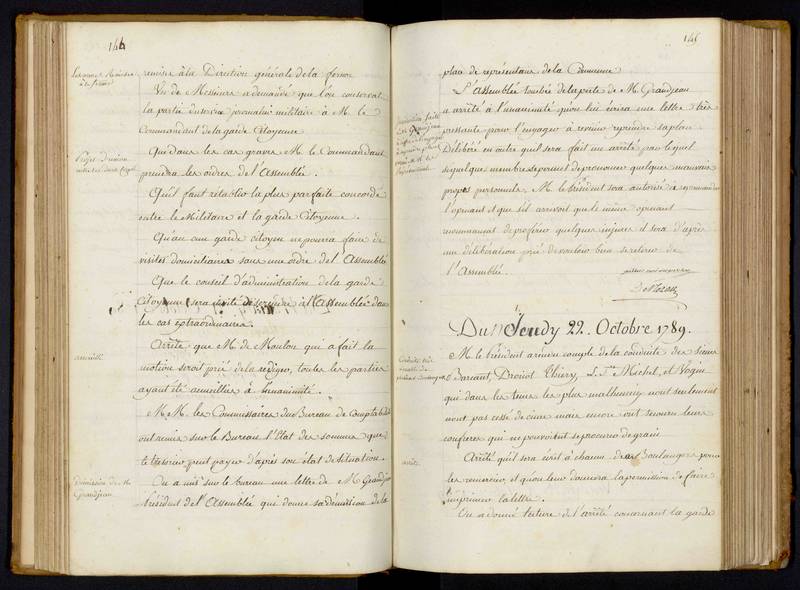 144
remises à la Direction générale de la ferme
Un de Messieurs a demandé que l'on conservat
la partie du service journalier militaire à M. le
Commandant de la garde Citoyenne
Que dans les cas graves M. le Commandant
prendra les ordres de l'Assemblée.
Qu'il faut établir la plus parfaite concorde
entre le Militaire et la garde Citoyenne.
Qu'aucune garde citoyenne ne pourra faire de
visites domiciliaires sans une ordre de l'Assemblée
Que le conseil d'administration de la garde
Citoyenne sera invité de se rendre à l'Assemblée dans
les cas extraordinaires.
Arrêté que M. de Moulon qui a fait la
motion seroit prié de la rédiger, toutes les parties
ayant été accueillies à l'unanimité.
accueillie
M.M. les Commissaires du Bureau de Comptabilité
ont remis sur le Bureau l'Etat des sommes que
le trésorier peut payer d'après son état de Situation.
Démission de M.
Grandjean
On a mis sur le Bureau une lettre de M. Grandjean
Président de l'Assemblée qui donne sa démission de la
145
place de représentant de la Commune
L'Assemblée touchée de la perte de M. Grandjean
a arrêté à l'unanimité qu'on lui écrira une lettre très
pressante pour l'engager à revenir reprendre sa place
Délibéré en outre qu'il sera fait un arrêté par lequel
si quelque membre se permet de prononcer quelque mauvais
propos personnels M. le Président sera autorisé à
l'opinant et que s'il arrivoit que le même opinant
recommençat de proférer quelque injure il sera d'après
une délibération prié de vouloir bien se retirer de
l'Assemblée.
Du Jeudy 22. Octobre 1789.
M. le Président a rendu compte de la conduite des Sieurs
Barcant, Drouot Thiery, Michel, et Vogin
qui dans les tems les plus malheureux non seulement
n'ont pas cessé de cuire mais encore ont secouru leurs
confreres qui ne pouvoient se procurer de grain
arrêté
Arrêté qu'il sera écrit à chacun de ces Boulangers pour
les remercier et qu'on leur donnera la permission de faire
imprimer la lettre.
On a donné lecture de l'arrêté concernant la garde